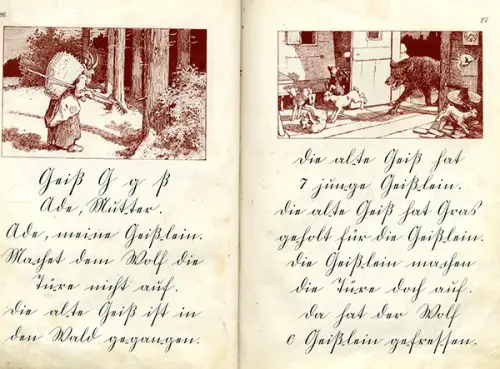 26
Geiß G g ß
Ade, Mutter.
Ade, meine Geißlein.
Machet dem Wolf die
Türe nicht auf.
Die alte Geiß ist in
den Wald gegangen.
27
Die alte Geiß hat
7 junge Geißlein.
Die alte Geiß hat Gras
geholt für die Geißlein.
Die Geißlein machen
die Türe doch auf.
Da hat der Wolf
6 Geißlein gefressen.